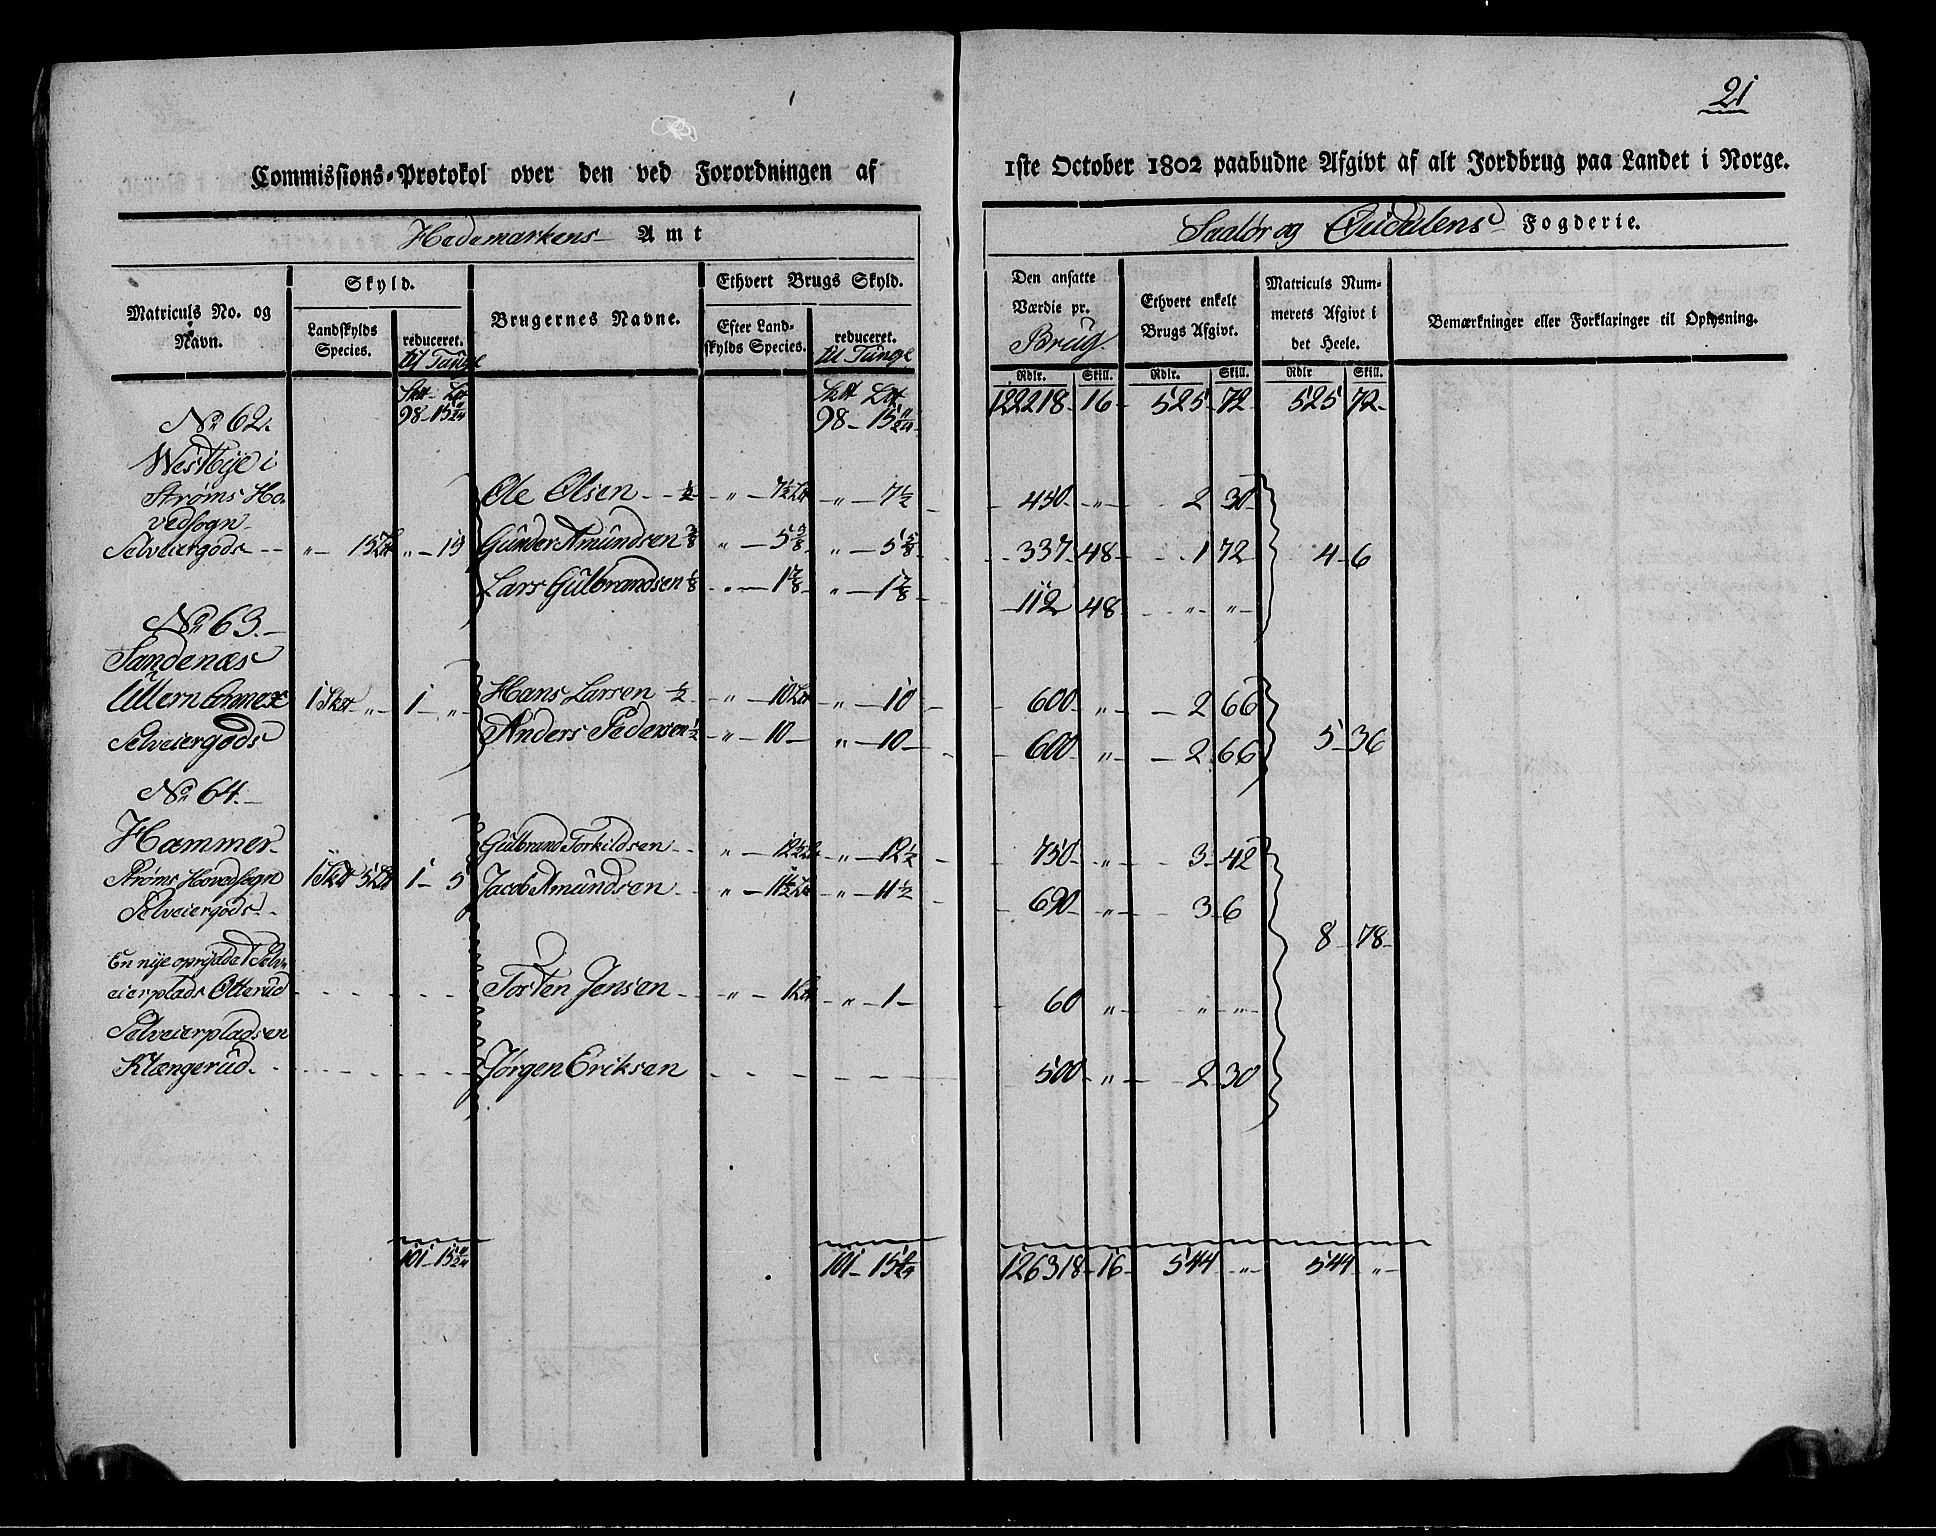 21
Commissions-Protokol over den ved Forordningen af 1ste October 1802 paabudne Afgivt af alt Jordbrug paa Landet i Norge.
Hedemarkens Amt
Saalør og Øudalens Fogderie.
Matriculs No. og Navn.
Skyld.
Landskylds Species.
reduceret. til Tunge
Brugernes Navne.
Ethvert Brugs Skyld.
Efter Landskylds Species.
reduceret. til Tunge
Den ansatte Værdie pr. Brug.
Ethvert enkelt Brugs Afgivt.
Matriculs Nummerets Afgivt i det Heele.
Bemærkninger eller Forklaringer til Oplysning.
Rdlr. Skill. Rdlr. Skill. Rdlr Skill.
98 - 15 98 - 15 122218 - 16 - 525 - 72 - 525 72 -
No 62.
Westbye i
Strøms Ho-
vedsogn
Ole Olsen - - ½ - „ - 7½ - „ - 7½ 450 - „ - 2 30
Selveiergods - - „ - 15 „ - 15 Gunder Amundsen 3/8 „ - 5 5/8 „ - 5 5/8 337 48 - 1 72 4 - 6
Lars Gulbrandsen 1/8 „ - 1 7/8 „ - 1 7/8 112 48 - „ - „
No 63.
Sandenæs
Ullern Annex 1 „ 1 - „ Hans Larsen ½ - „ - 10 „ - 10 600 „ 2 66
Selveiergods Anders Pedersen ½ - „ - 10 - „ - 10 - 600 „ 2 66 5 - 36
No 64.
Hammer
Gulbrand Torkildsen - - „ - 12½ „ - 12½ 750 - „ - 3 - 42
Strøms Hovedsogn 1 5 1 - 5 Jacob Amundsen - „ - 11½ „ - 11½ 690 „ 3 - 6
Selveiergods - 8 - 78
En nye opryddet Selv-
eierplads Otterud Torsten Jensen - - „ - 1 „ - 1 - 60 „ „ - „
Selveierpladsen
Klængerud - Jørgen Eriksen 500 „ 2 30
101 - 15 101 - 15 126318 - 16 - 544 - „ 544 „